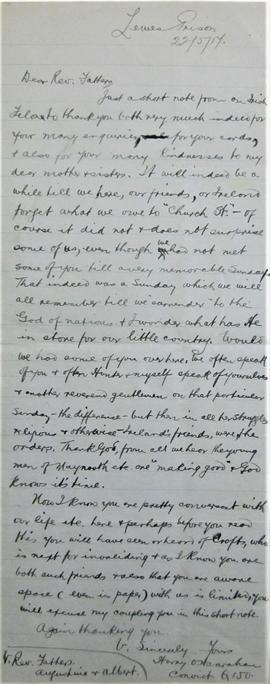 Lewes Prison
22/5/17.
Dear Rev. Fathers
Just a short note from an Irish
Felon to thank you both very much indeed for
your many enquiries for your cards,
& also for your many kindnesses to my
dear mother & sisters. It will indeed be a
while till we here, our friends, or Ireland
forget what we owe to "Church St" - of
course it did not & does not surprise
some of us, even though we had not met
some of you till a very memorable Sunday.
That indeed was a Sunday which we will
all remember till we "surrender" to the
God of nations & I wonder what has He
in store for our little country. Would
we had some of you over here. We often speak
of you & often Hunter & myself speak of yourselves
& another reverend gentleman on that particular
Sunday - the difference - but then in all her struggles
religious & otherwise Ireland's friends, were the
orders. Thank God from all we hear the young
men of Maynooth etc are "making good" & God
knows its time.
Now I know you are pretty conversant with
our life etc. here & perhaps before you read
this you will have seen or heard of Crofts, who
is next for invaliding & as I know you are
both such friends & also that you are aware
space (even in paper) with us is limited, you
will excuse my coupling you in this short note.
Again thanking you
V. Sincerely Yours
Harry O'Hanrahan
Convict q 150.
V. Rev. Fathers
Augustine & Albert.